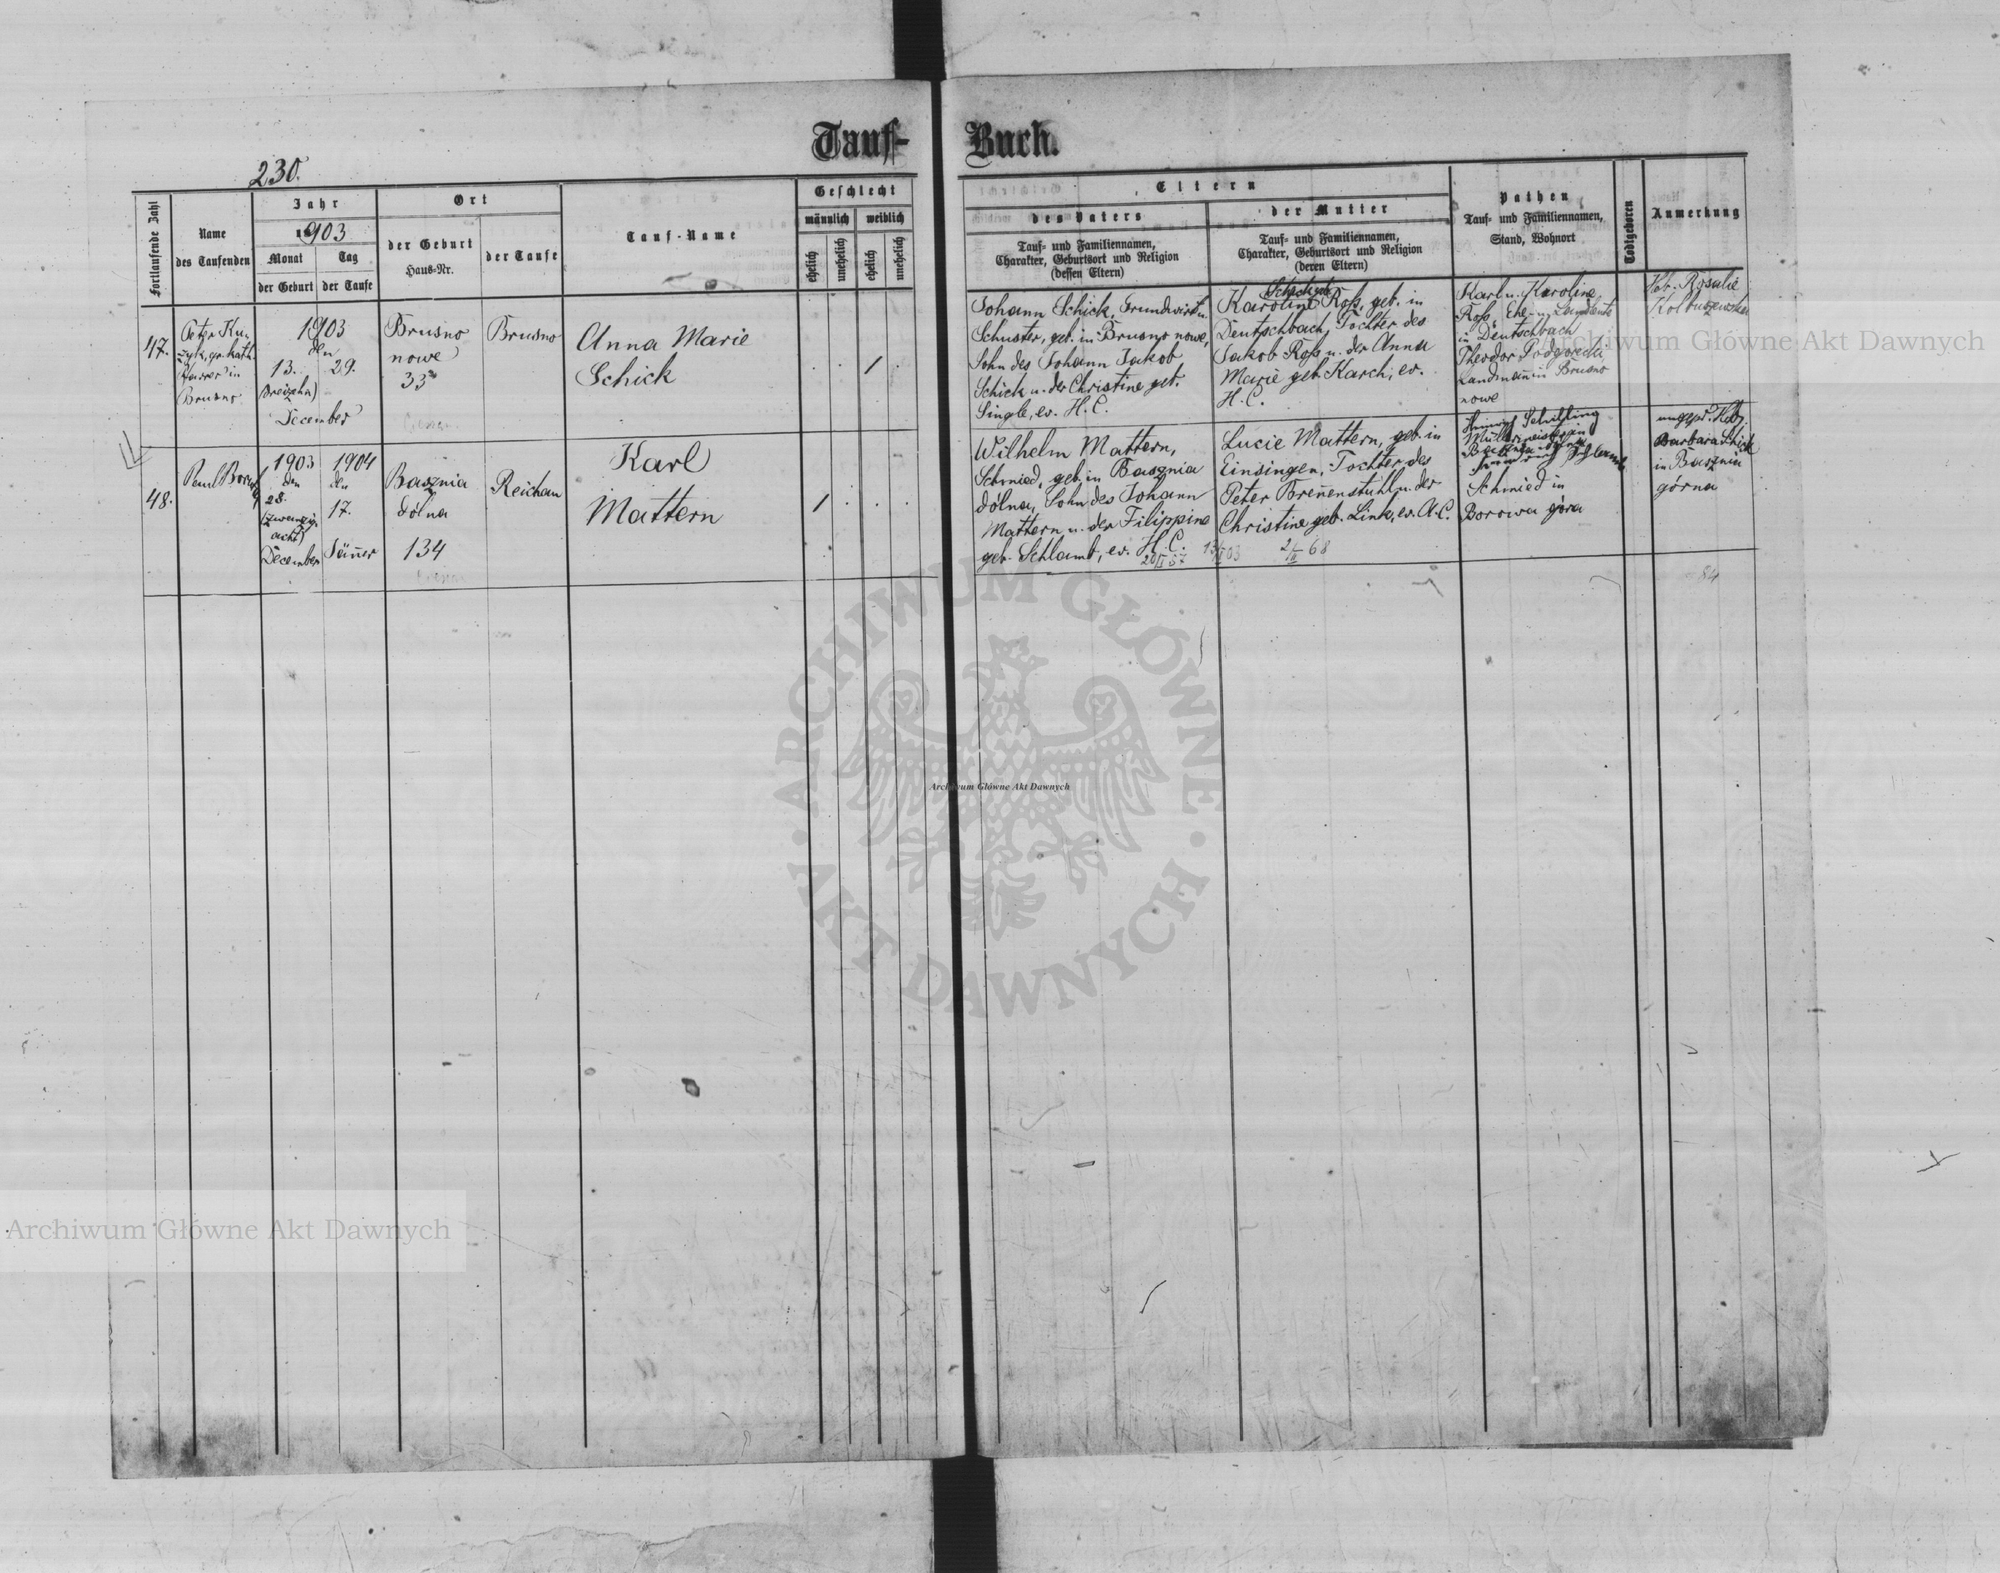 Tauf-Buch.
230.
Fortlaufende Zahl
Name des Taufenden
Jahr
1903
Monat der Geburt
Tag der Taufe
Ort
der Geburt Haus-Nr.
der Taufe
Tauf-Name
Geschlecht
männlich
weiblich
ehelich
unehelich
ehelich
unehelich
Eltern
des Vaters
Tauf- und Familiennamen,
Charakter, Geburtsort und Religion
(dessen Eltern)
der Mutter
Tauf- und Familiennamen,
Charakter, Geburtsort und Religion
(deren Eltern)
Pathen
Tauf- und Familiennamen,
Stand, Wohnort
Todtgeboren
Anmerkung
47.
Peter Ku-
zyk, gr. kath.
Pfarrer in
Brusno
1903
den
13. 29.
(Dreizehn)
December
Brusno
nowe
33
Brusno
Anna Marie
Schick
Johann Schick, Grundwirt u.
Schuster, geb. in Brusno nowe,
Sohn des Johann Jakob
Schick u. der Christine geb.
Single, ev. H. C.
Schick geb.
Karoline Roß, geb. in
Deutschbach, Tochter des
Jakob Roß u. der Anna
Marie geb. Karch, ev.
H. C.
Karl u. Karoline
Roß, Ehe- u. Landleute
in Deutschbach
Theodor Podgorecki
Landmann in Brusno
nowe
Heb. Rosalie
48.
Paul
1903
den
28.
(zwanzig-
acht)
December
1904
den
17.
Jänner
Basznia
dólna
134
Reichau
Karl
Mattern
Wilhelm Mattern,
Schmied, geb. in Basznia
dólna, Sohn des Johann
Mattern u. der Filippine
geb. Schlamb, ev. H. C.
Lucie Mattern, geb. in
Einsingen, Tochter des
Peter Brennenstuhl u. der
Christine geb. Link, ev. A. C.
Heinrich
Müllermeister in
Schmied in
Borowa góra
ungepr. Heb.
Barbara Schick
in Basznia
górna
68
84
Archiwum Główne Akt Dawnych
ARCHIWUM GŁÓWNE · AKT DAWNYCH ·
Archiwum Główne Akt Dawnych
Archiwum Główne Akt Dawnych